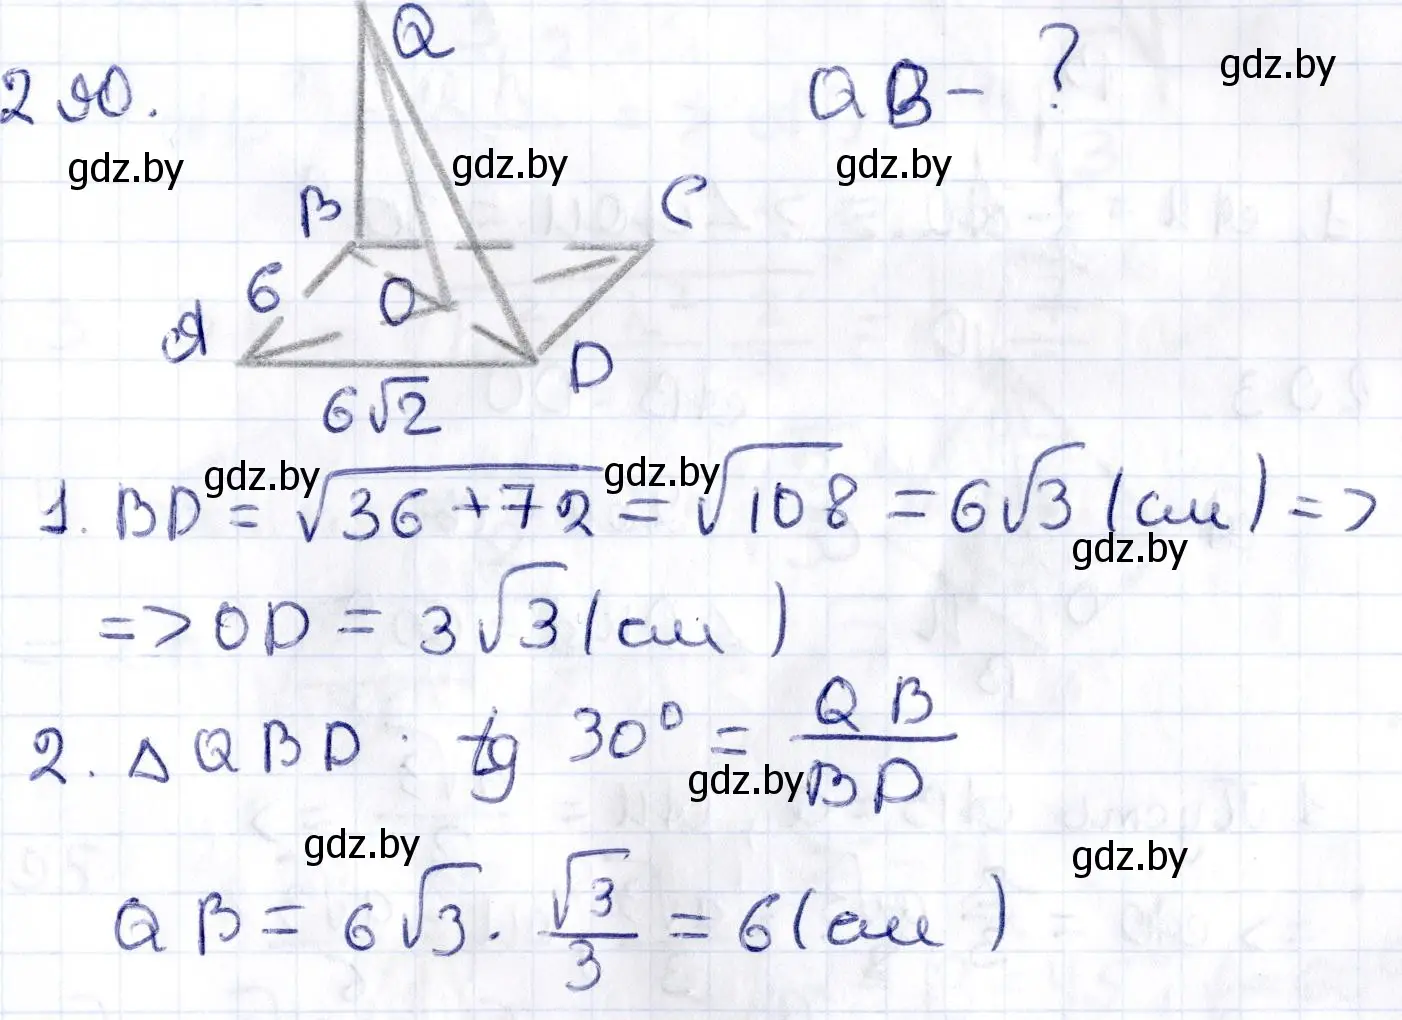 Q
290.
QB - ?
gdz.by
gdz.by
gdz.by
gdz.by
B
C
6
O
A
D
6√2
gdz.by
gdz.by
1. BD = √36+72 = √108 = 6√3 (см) =>
gdz.by
=> OD = 3√3 (см)
2. △QBD: tg 30° = QB/BD
gdz.by
gdz.by
gdz.by
QB = 6√3 · √3/3 = 6 (см)